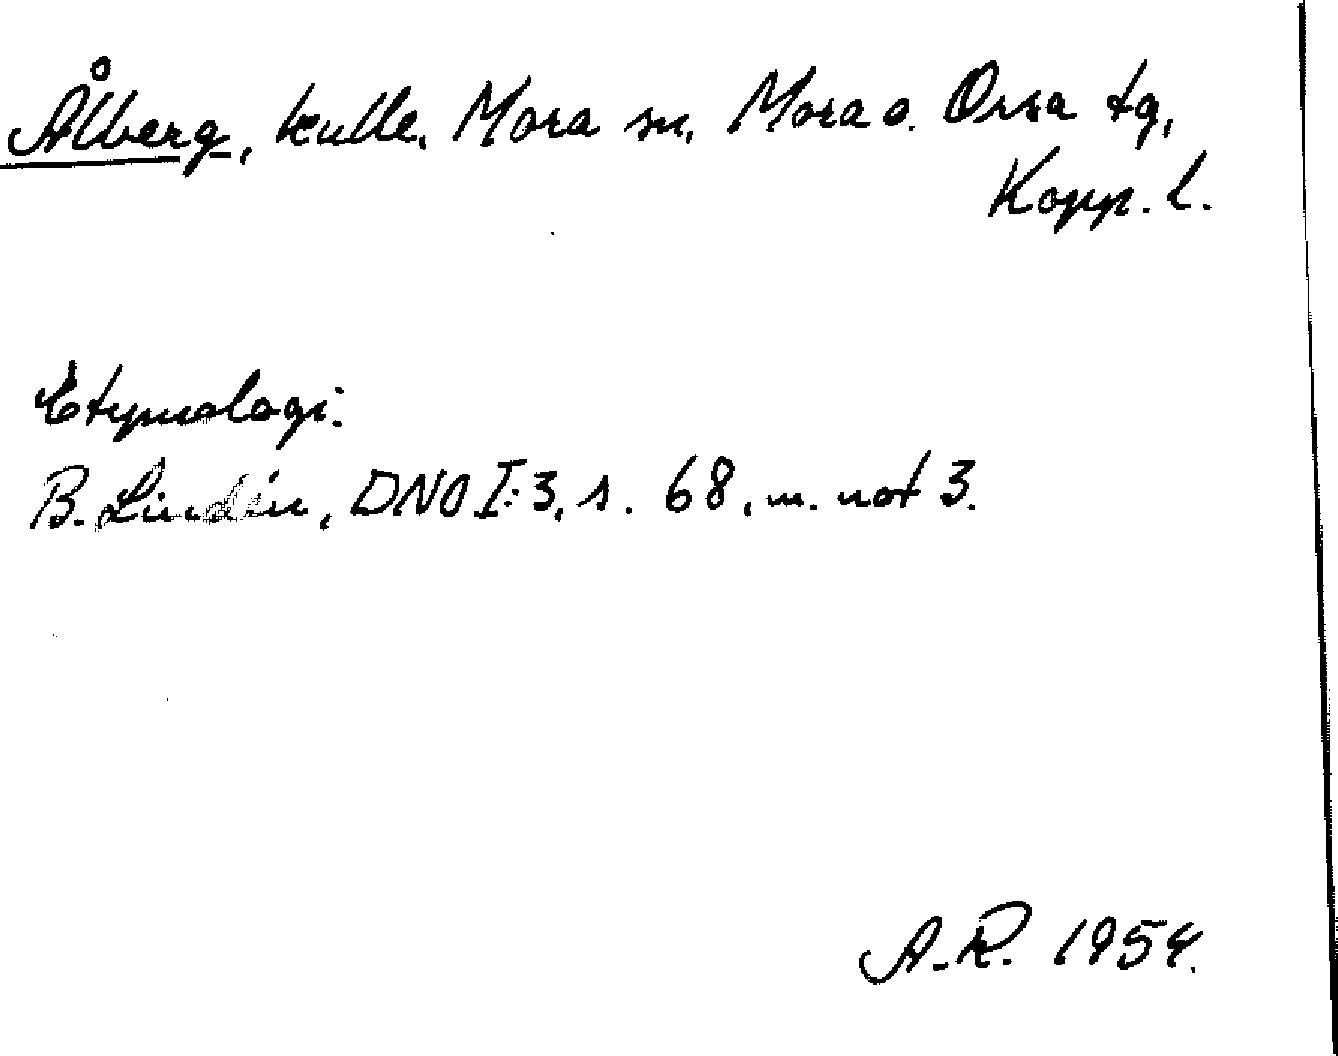 Ålberg, kulle, Mora sn, Mora o. Orsa tg,
Kopp. l.
Etymologi.
B. Lindén, DNO I:3, s. 68, m. not 3.
A.R. 1954.